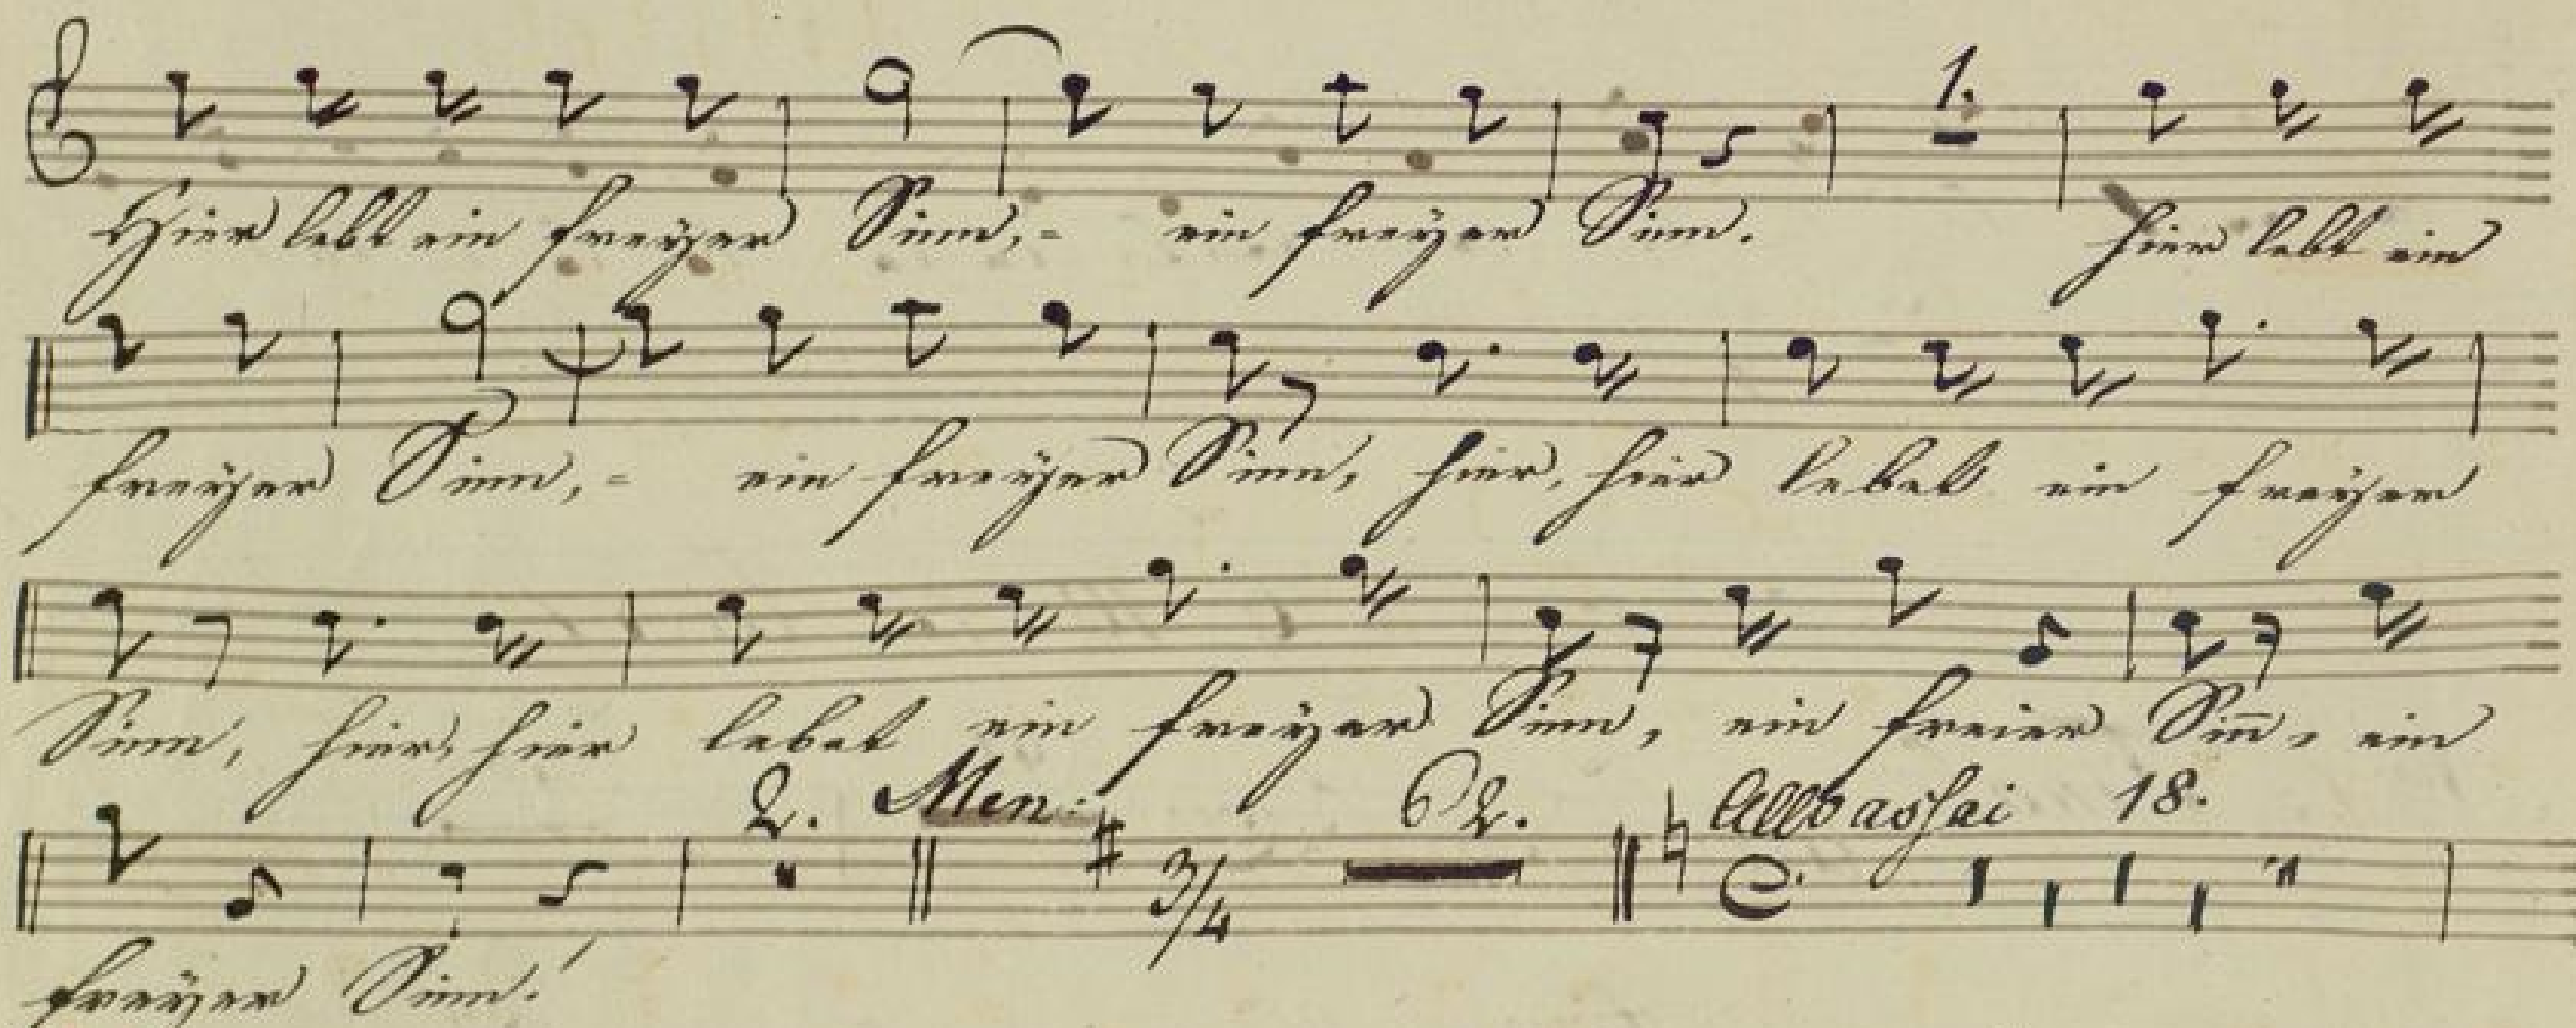 1.
Hier lebt ein freyer Sinn, - ein freyer Sinn. hier lebt ein
freyer Sinn, - ein freyer Sinn, hier, hier lebet ein freyer
Sinn, hier, hier lebet ein freyer Sinn, ein freier Sin̄, ein
2. Men: 62. Allo assai 18.
3/4
freyer Sinn!